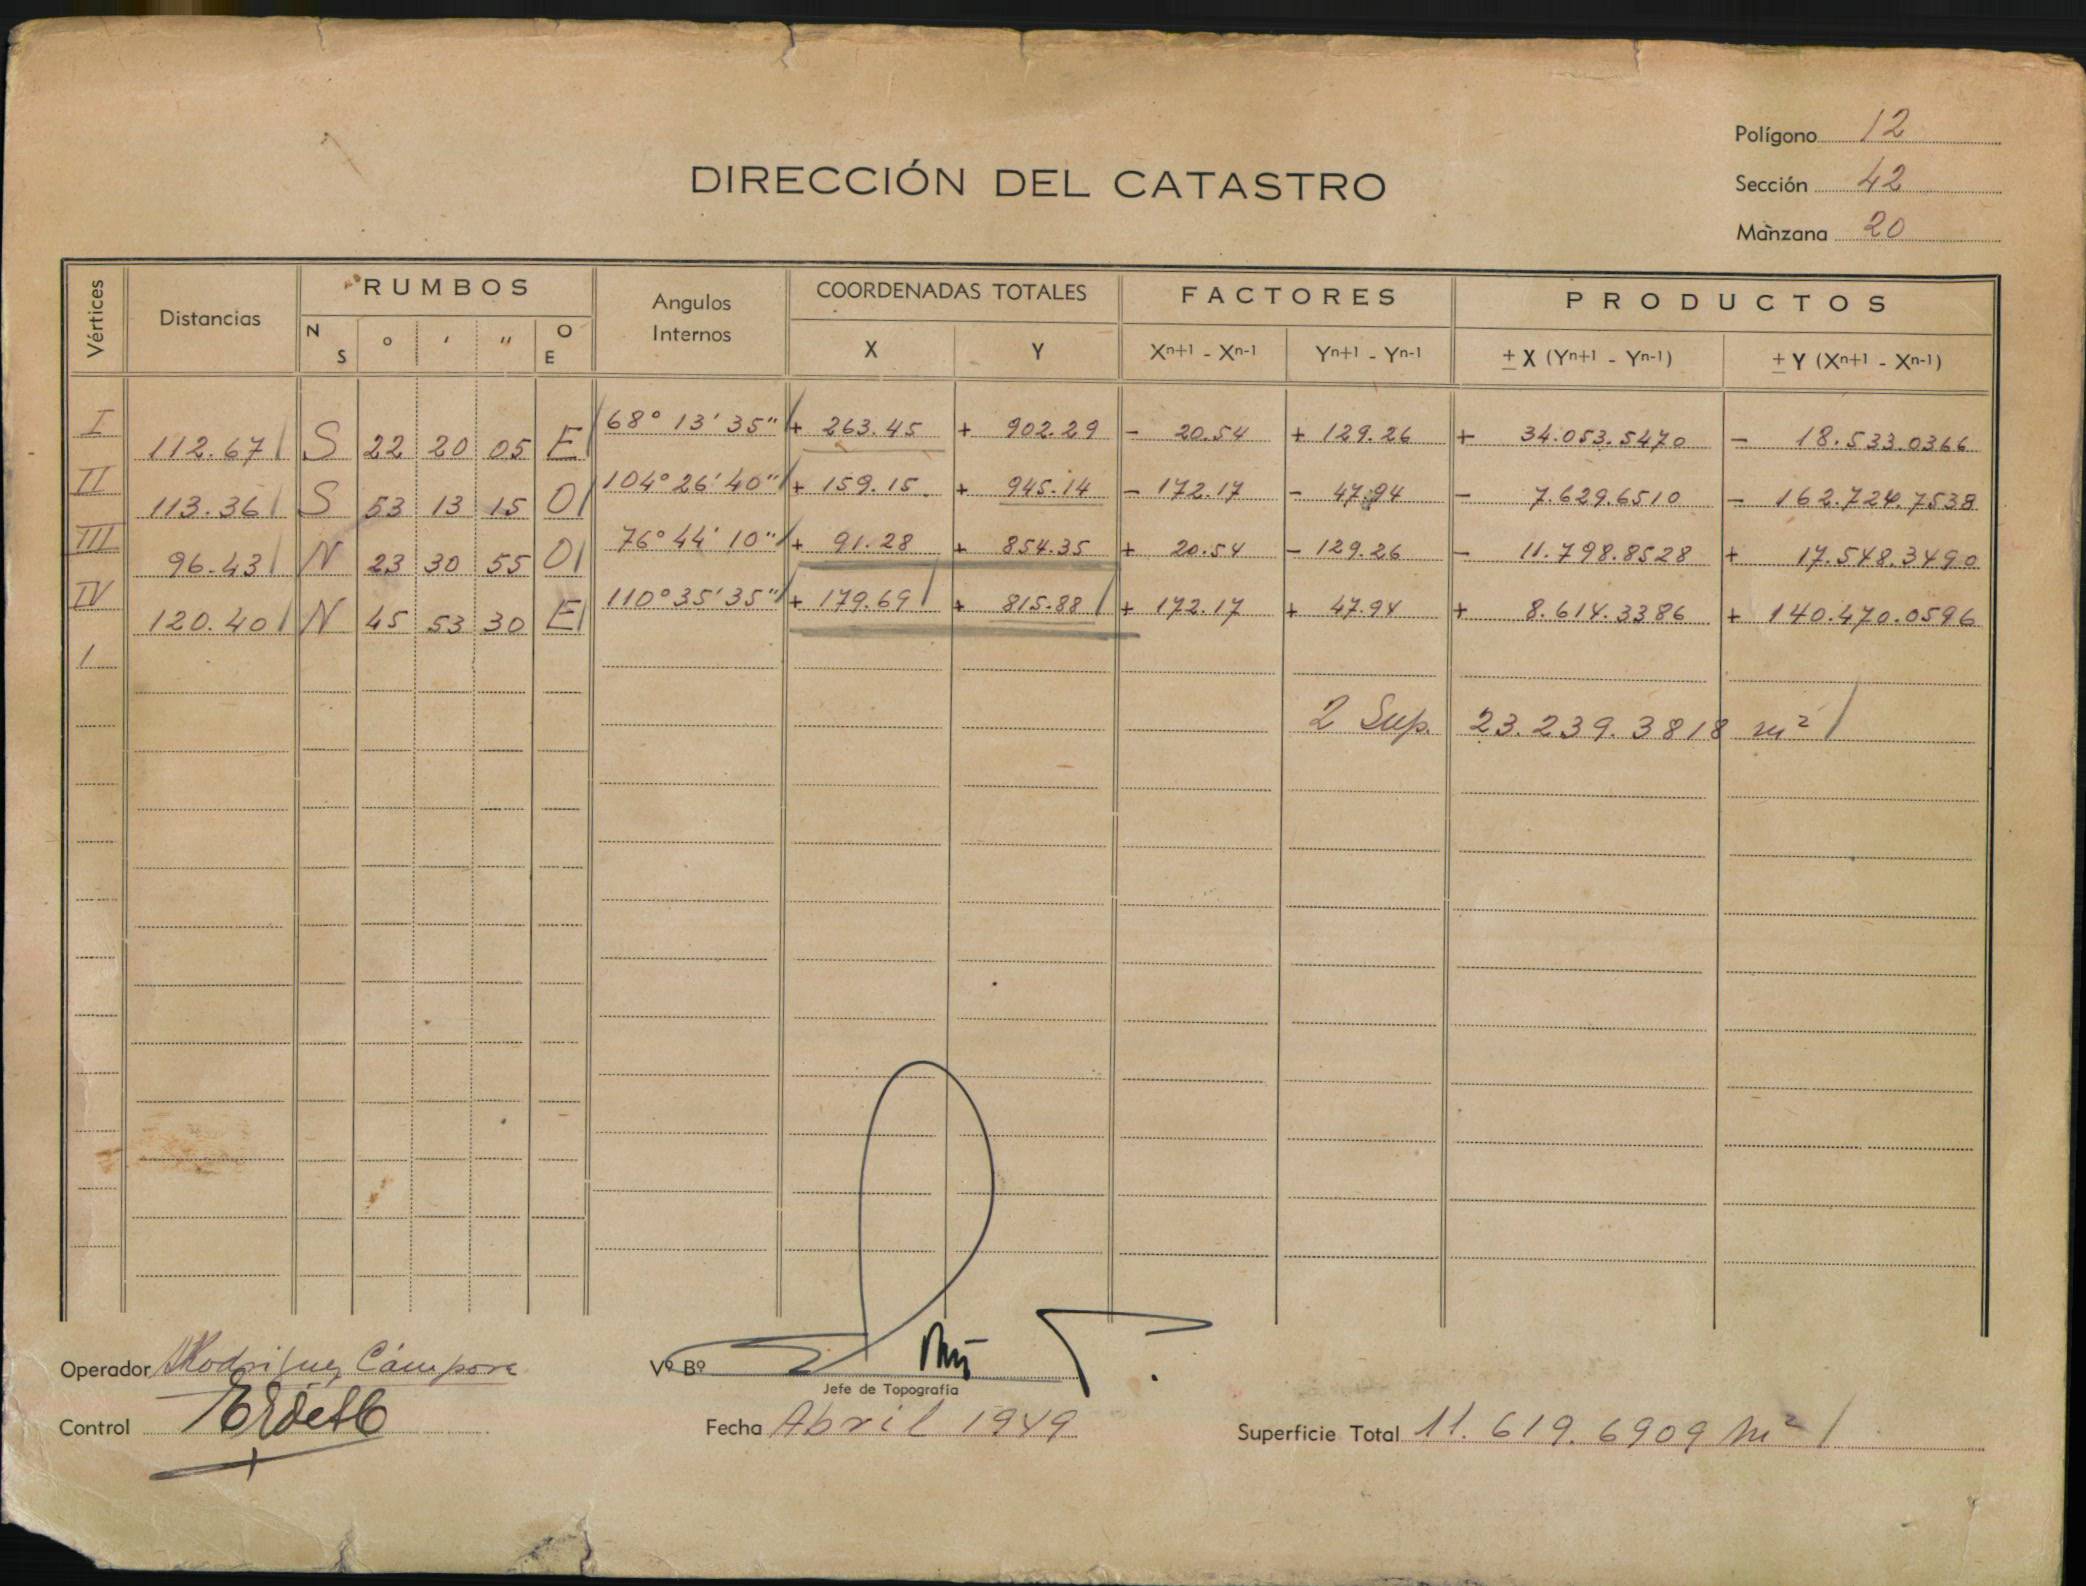 Polígono 12
DIRECCIÓN DEL CATASTRO
Sección 42
Manzana 20
Vértices Distancias RUMBOS Angulos Internos COORDENADAS TOTALES FACTORES PRODUCTOS
N S ° ' " O E X Y Xn+1 - Xn-1 Yn+1 - Yn-1 ± X (Yn+1 - Yn-1) ± Y (Xn+1 - Xn-1)
I 68° 13' 35" + 263.45 + 902.29 - 20.54 + 129.26 + 34.053.5470 - 18.533.0366
112.67 S 22 20 05 E
II 104° 26' 40" + 159.15 + 945.14 - 172.17 - 47.94 - 7.629.6510 - 162.724.7538
113.36 S 53 13 15 O
III 76° 44' 10" + 91.28 + 854.35 + 20.54 - 129.26 - 11.798.8528 + 17.548.3490
96.43 N 23 30 55 O
IV 110° 35' 35" + 179.69 + 815.88 + 172.17 + 47.94 + 8.614.3386 + 140.470.0596
120.40 N 45 53 30 E
I
2 Sup. 23.239.3818 m²
Operador Rodriguez Cámpora
Vº Bº
Jefe de Topografía
Control
Fecha Abril 1949
Superficie Total 11.619.6909 m²